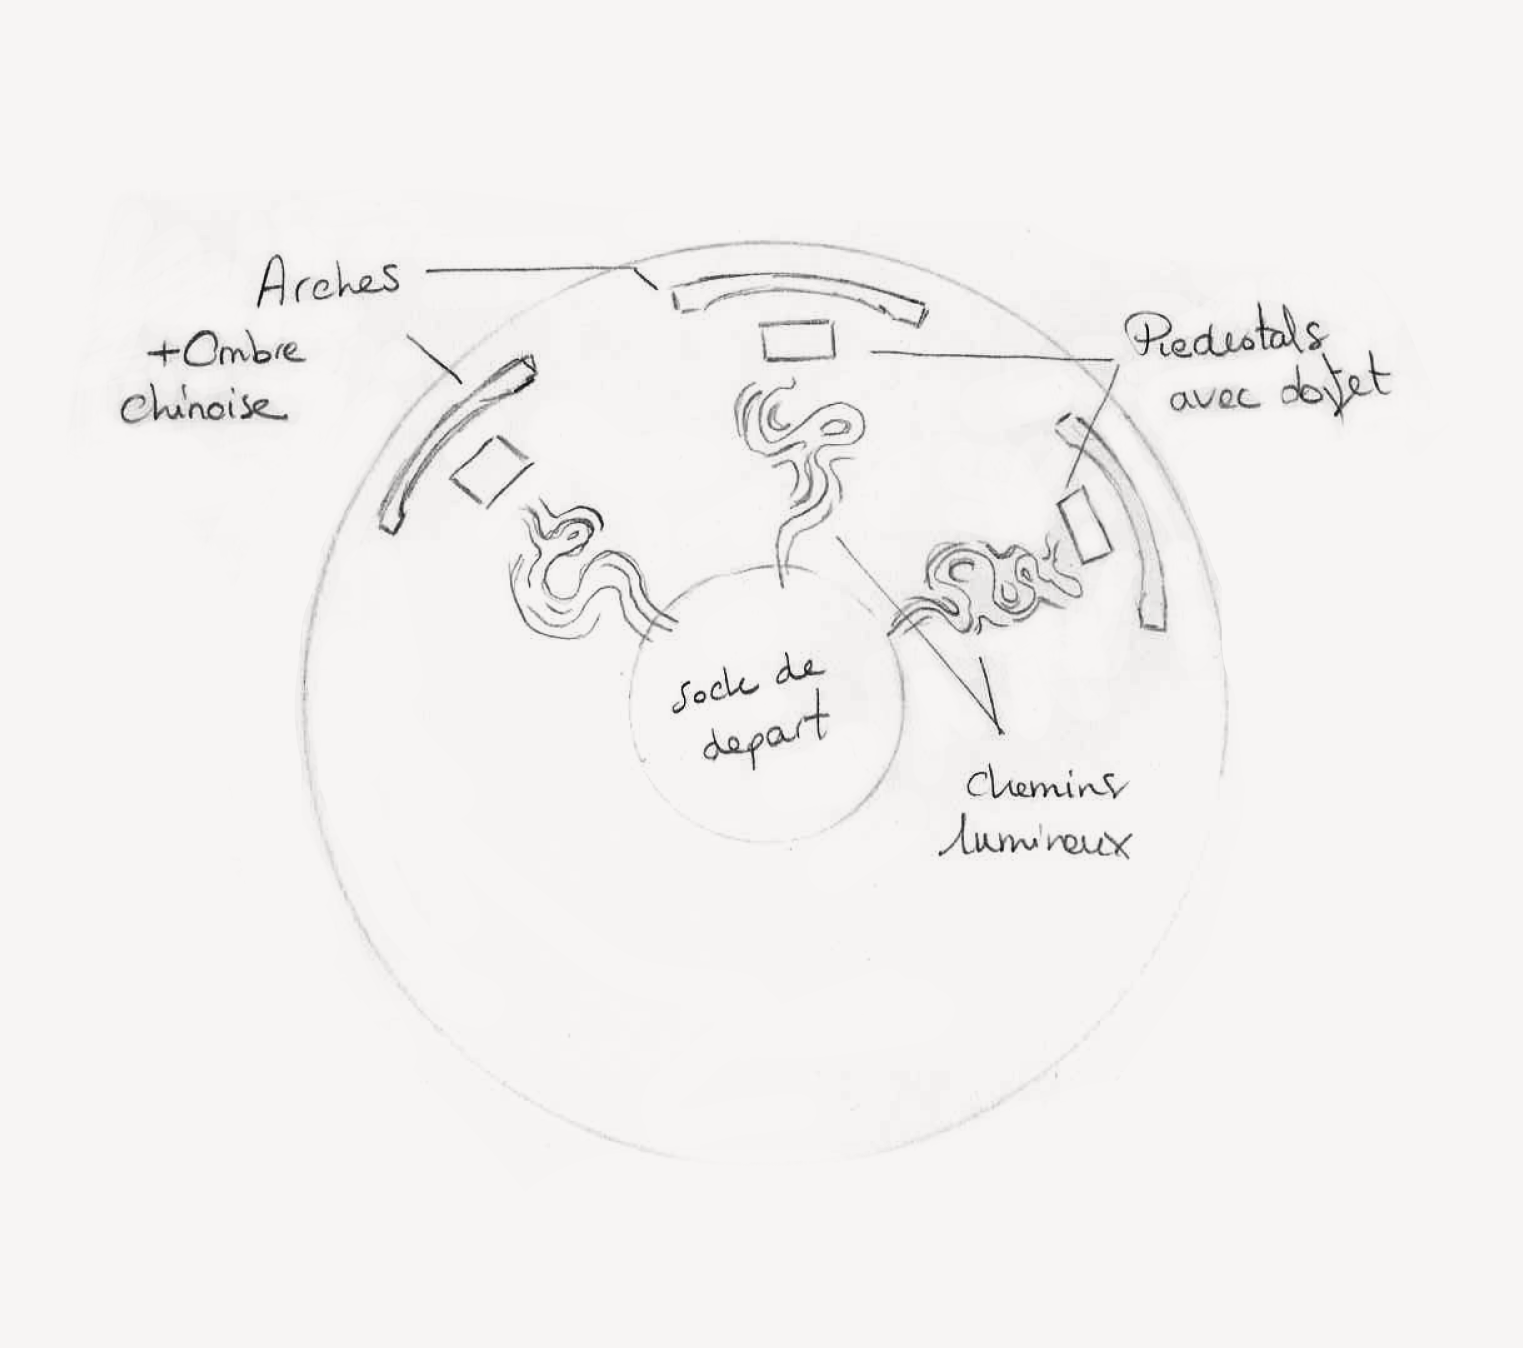 Arches
+Ombre
chinoise
Piedestals
avec
socle de
depart
chemins
lumineux